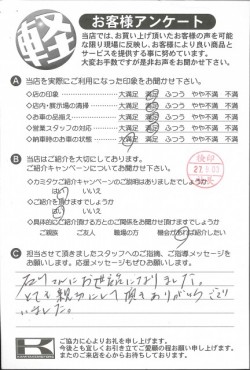 軽
お客様アンケート
当店では、お買い上げ頂いたお客様の声を可能
な限り現場に反映し、お客様により良い商品と
サービスを提供する事に努めています。
大変お手数ですが是非お声をお聞かせ下さい。
A 当店を実際にご利用になった印象をお聞かせ下さい。
◇店の印象 大満足 満足 ふつう やや不満 不満
◇店内・展示場の清掃 大満足 満足 ふつう やや不満 不満
◇お車の品揃え 大満足 満足 ふつう やや不満 不満
◇営業スタッフの対応 大満足 満足 ふつう やや不満 不満
◇納車時のお車の状態 大満足 満足 ふつう やや不満 不満
B 当店はご紹介を大切にしております。
ご紹介キャンペーンについてお聞かせ下さい。
◇カミタケご紹介キャンペーンのご説明はありましたでしょうか
はい いいえ
◇ご紹介を頂けますでしょうか
はい いいえ
◇具体的にご紹介頂ける方とのご関係をお聞かせ頂けますでしょうか
ご親族 ご友人 職場の方 機会があれば紹介したい
C 担当させて頂きましたスタッフへのご指摘、ご指導メッセージを
お願いします。応援メッセージもぜひお願いします。
さんにお世話になりました。
とても親切にして頂きありがとうござ
いました。
ご協力に心よりお礼を申し上げます。
今後とも宜しくお引き立てご愛顧の程お願い申し上げます。
またのご来店を心からお待ちしております。